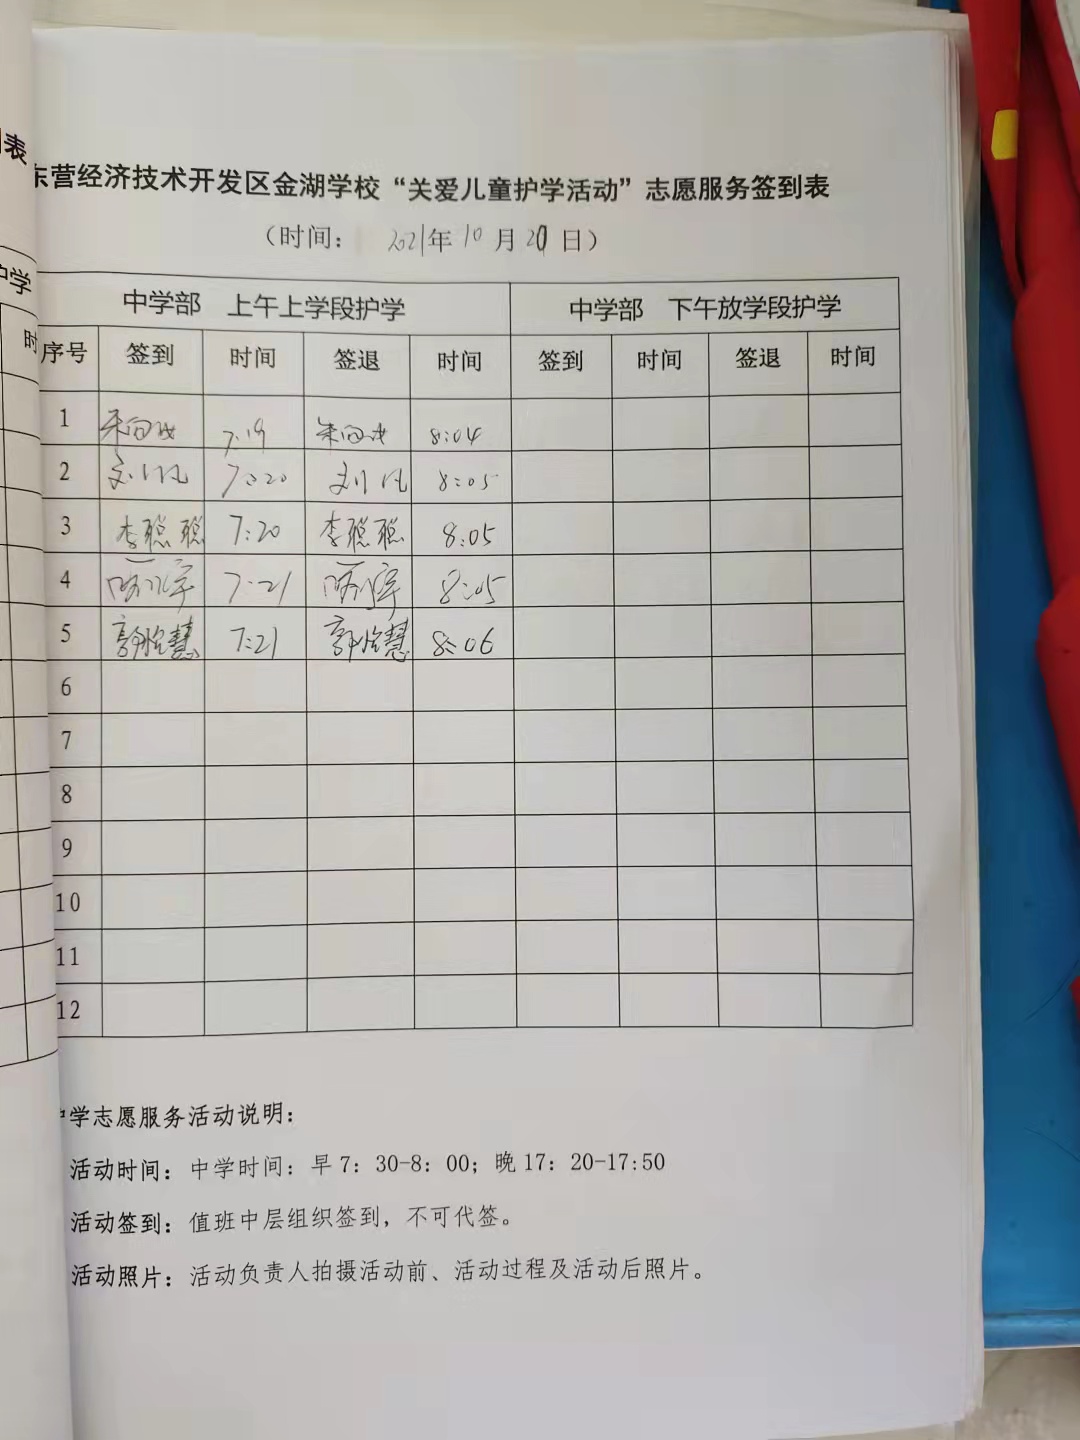 表
东营经济技术开发区金湖学校“关爱儿童护学活动”志愿服务签到表
（时间： 2021年10月20日）
护学
中学部 上午上学段护学 中学部 下午放学段护学
时
序号 签到 时间 签退 时间 签到 时间 签退 时间
1 7:19 8:04
2 7:20 8:05
3 李聪聪 7:20 李聪聪 8:05
4 7:21 8:05
5 7:21 8:06
6
7
8
9
10
11
12
护学志愿服务活动说明：
活动时间：中学时间：早7：30-8：00；晚17：20-17:50
活动签到：值班中层组织签到，不可代签。
活动照片：活动负责人拍摄活动前、活动过程及活动后照片。